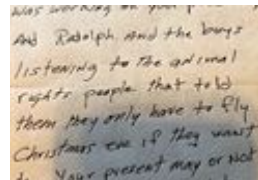 was working on your
And Rudolph and the boys
listening to the animal
rights people that told
them they only have to fly
Christmas eve if they want
to Your present may or not